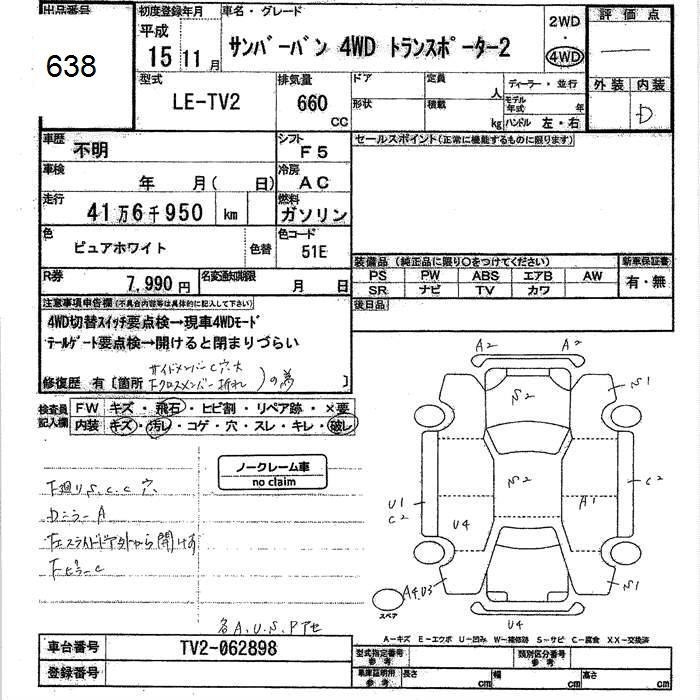 出品番号
638
初度登録年月
平成
15 11月
車名・グレード
サンバーバン 4WD トランスポーター2
2WD
・
4WD
評価点
外装 内装
D
型式
LE-TV2
排気量
660
CC
ドア
定員
人
形状
積載
kg
ディーラー・並行
モデル年式 年
ハンドル 左・右
車歴
不明
シフト
F5
セールスポイント(正常に機能するものに限ります)
車検
年 月( 日)
冷房
AC
走行
41万6千950 km
燃料
ガソリン
色
ピュアホワイト
色替
色コード
51E
装備品 (純正品に限り○をつけてください)
新車保証書
PS PW ABS エアB AW
SR ナビ TV カワ
有・無
R券
7,990円
名変通知期限
月 日
後日品
注意事項申告欄(不具合内容等は具体的に記入して下さい)
4WD切替スイッチ要点検→現車4WDモード
テールゲート要点検→開けると閉まりづらい
サイドメンバーC穴大
修復歴 有〔箇所 Fクロスメンバー折れ )の為 〕
検査員記入欄
FW キズ・飛石・ヒビ割・リペア跡・×要
内装 キズ・汚レ・コゲ・穴・スレ・キレ・破レ
ノークレーム車
no claim
下廻りS.C.C穴
ミラーA
各A.U.S.Pアセ
A2 A2
S2 S1
S2 C2
U1
C2
A1
U4
A4U3 S1
スペア
U4
A−キズ E−エクボ U−凹み W−補修跡 S−サビ C−腐食 XX−交換済
車台番号
TV2-062898
登録番号
型式指定番号
参考
類別区分番号
参考
車庫証明用
参考
長さ cm 幅 cm 高さ cm